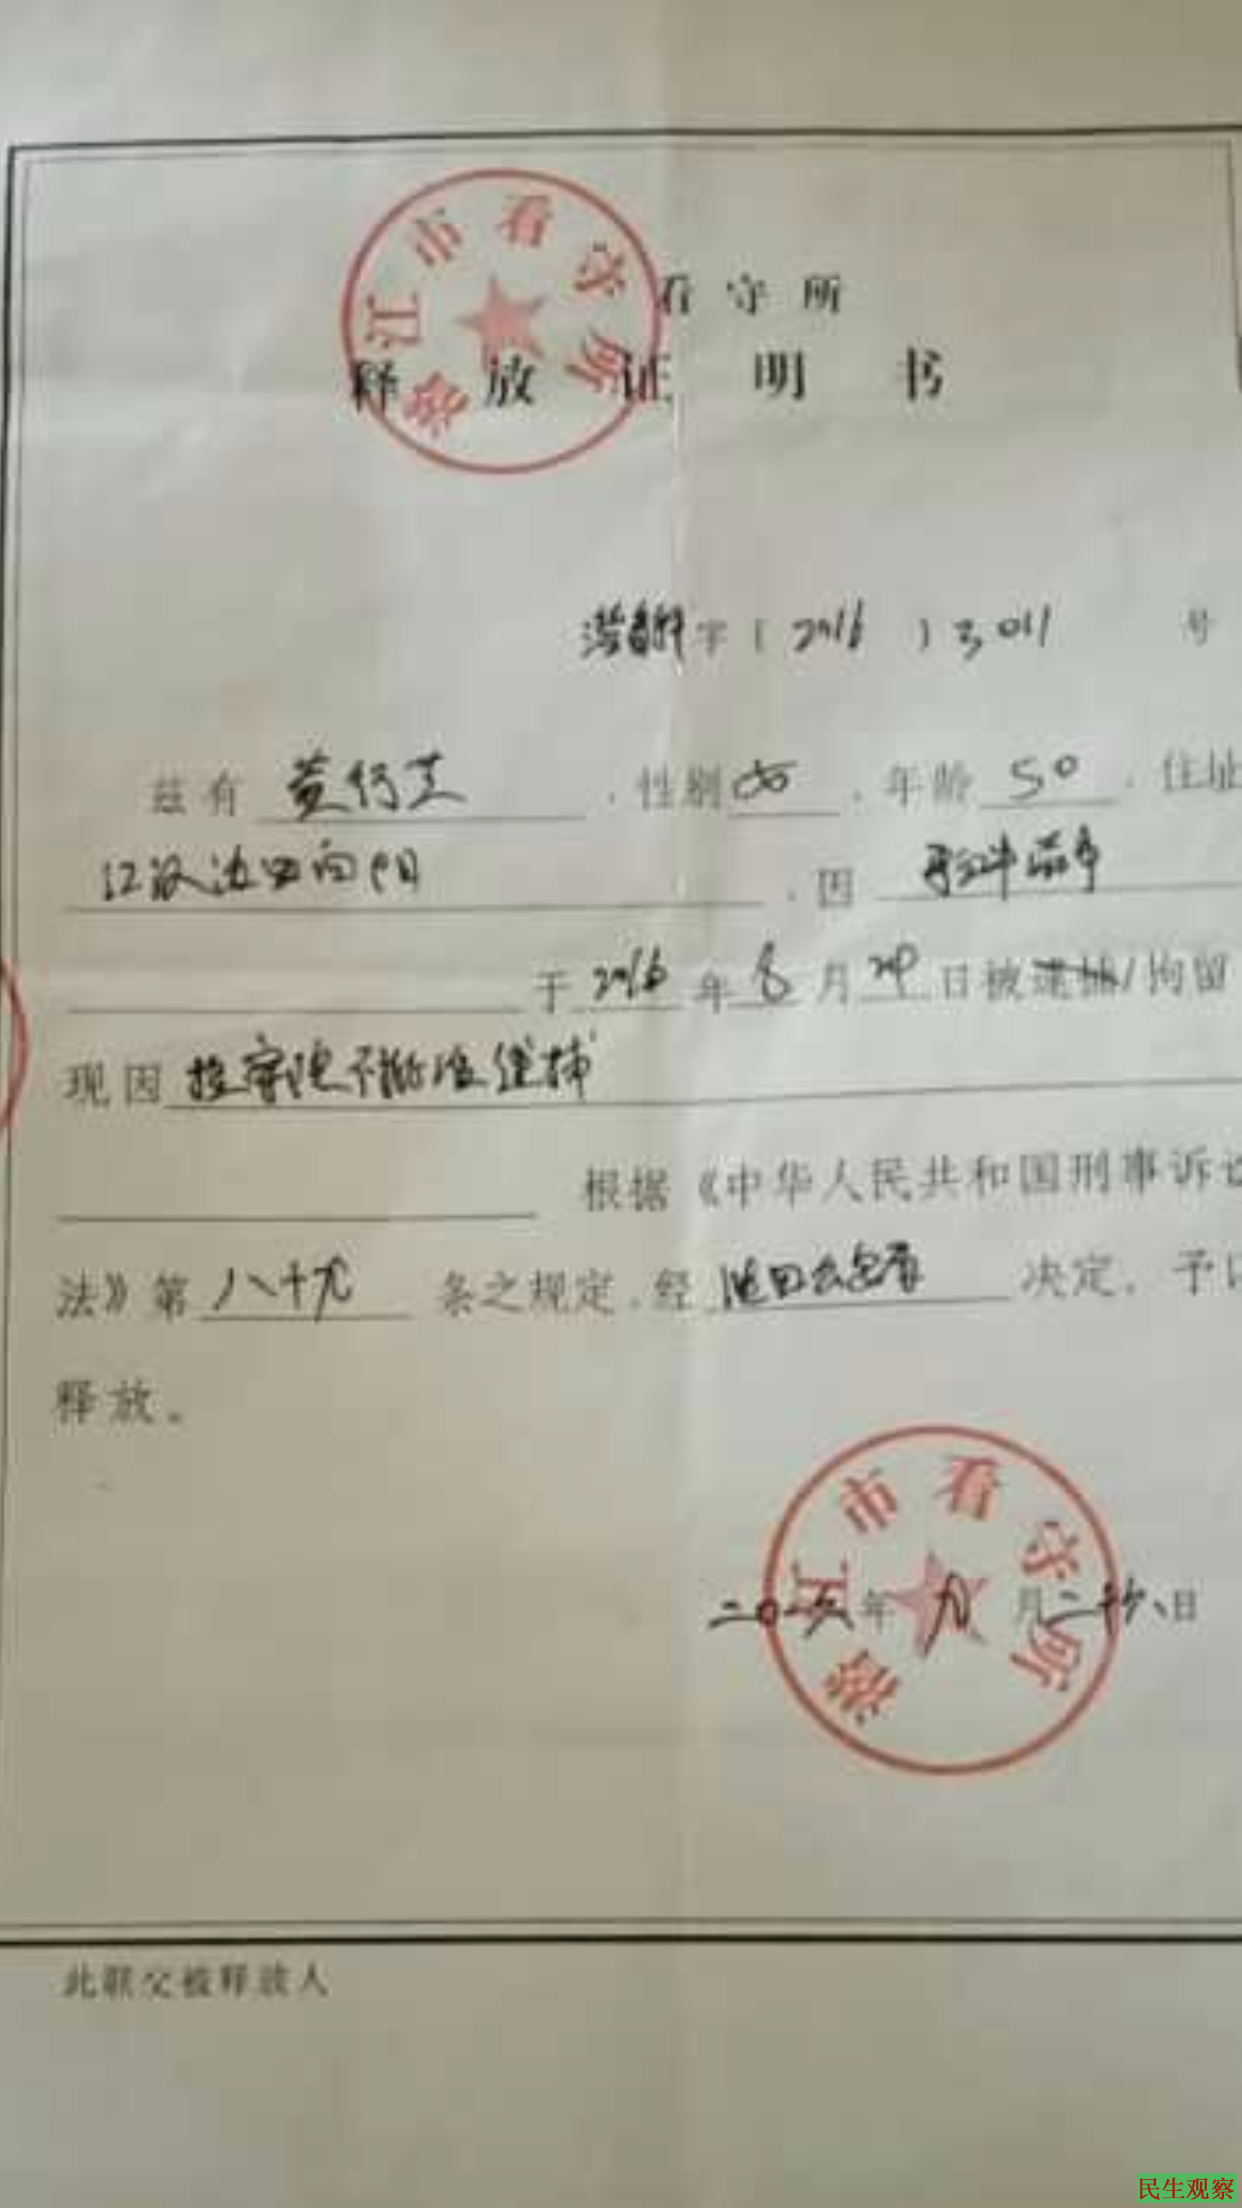 潜江市看守所
看守所
释放证明书
字(2016)3011号
兹有 黄行芝 ,性别 女 ,年龄 50 ,住址
江汉油田向阳 ,因
于 2016 年 8 月 29 日被逮捕/拘留
现因 检察院不批准逮捕
根据《中华人民共和国刑事诉讼
法》第 八十九 条之规定,经 决定,予以
释放。
潜江市看守所
二〇一六年九月二十八日
此联交被释放人
民生观察